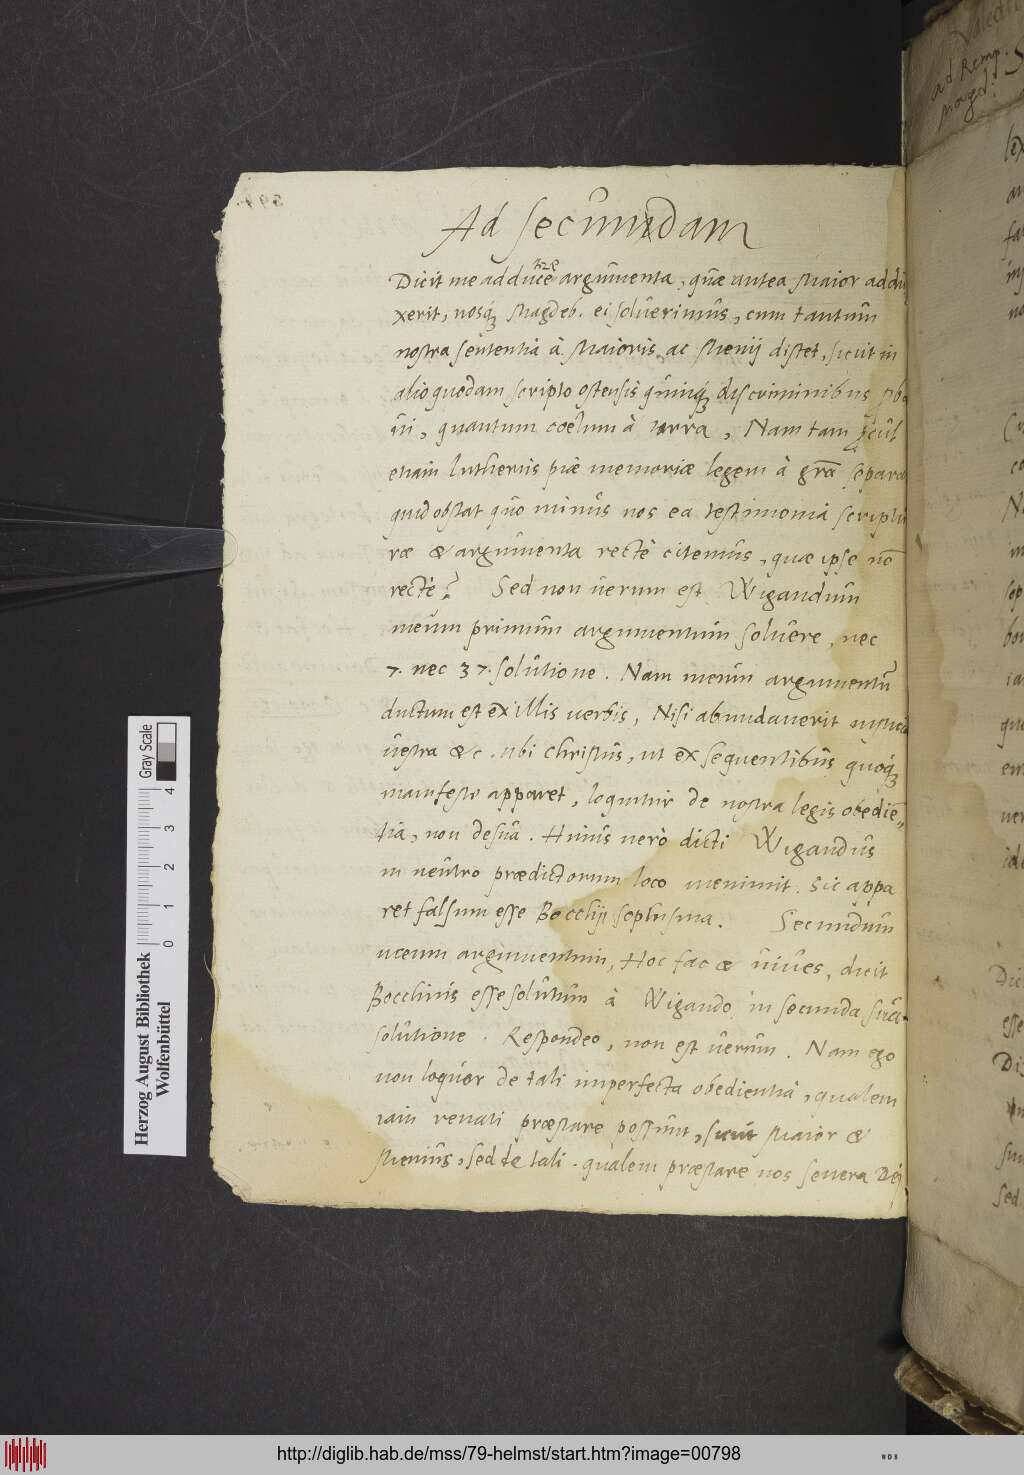 Ad secundam
Dicit me adducere argumenta, quæ antea Maior addu
xerit, nosq; Magdeb. ei solverimus, cum tantum
nostra sententia à Maioris ac Menij distet, sicut in
alio quodam scripto ostensis quinq; discriminibus
ui, quantum coelum à terra, Nam tam procul
etiam Lutherus piæ memoriæ legem à grã separa
quid obstat quo minus nos ea testimonia scriptu
ræ & argumenta rectè citemus, quæ ipse nõ
rectè? Sed non uerum est Wigandum
meum primum argumentum soluere, nec
7. nec 37. solutione. Nam meum argumentũ
ductum est ex illis uerbis, Nisi abundauerit iusticia
uestra &c. ubi Christus, ut ex sequentibus quoq;
manifeste apparet, loquitur de nostra legis obediẽ„
tia, non de sua. Huius uerò dicti Wigandus
in neutro prædictorum loco meminit. Sic appa
ret falsum esse Bocclij sophisma. Secundum
meum argumentum, Hoc fac & uiues, dicit
Bocclius esse solutum à Wigando in secunda sua
solutione. Respondeo, non est uerum. Nam ego
non loquor de tali imperfecta obedientia, qualem
iam renati præstare possunt, sicut Maior &
Menius, sed de tali. qualem præstare nos seuera Dei
ad Remp.
Magd:
Herzog August Bibliothek
Wolfenbüttel
Gray Scale
0 1 2 3 4
http://diglib.hab.de/mss/79-helmst/start.htm?image=00798
WDB